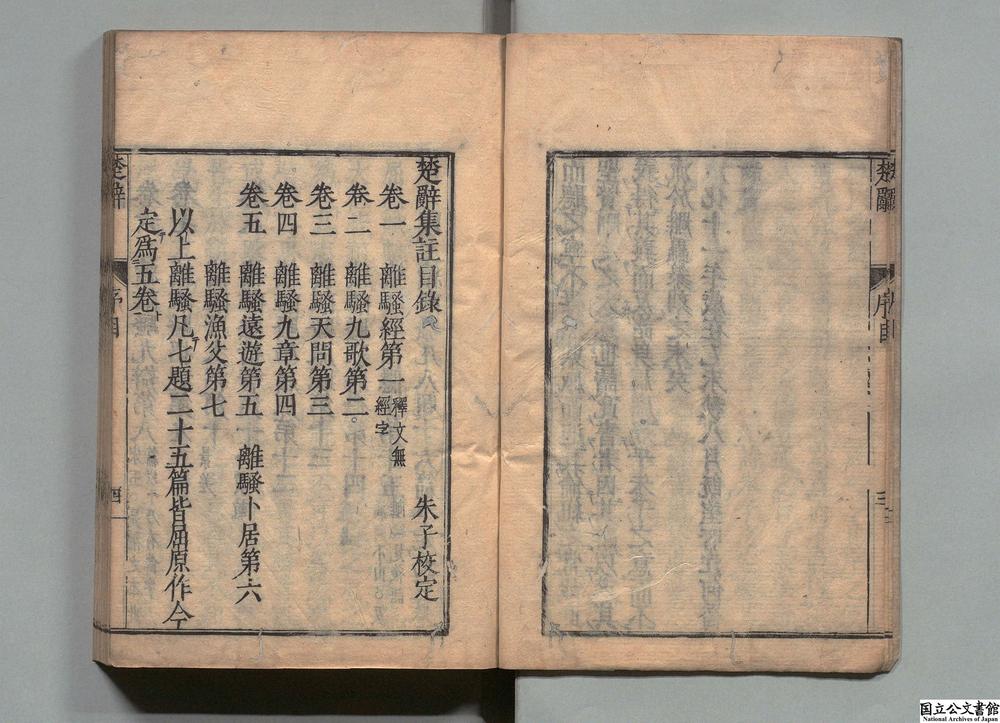 楚辭集註目錄
朱子校定
卷一 離騷經第一 釋文無經字
卷二 離騷九歌第二
卷三 離騷天問第三
卷四 離騷九章第四
卷五 離騷遠遊第五 離騷卜居第六
離騷漁父第七
以上離騷凡七題二十五篇皆屈原作今
定為五卷
楚辭 序目 四
楚辭 序目 三
国立公文書館
National Archives of Japan